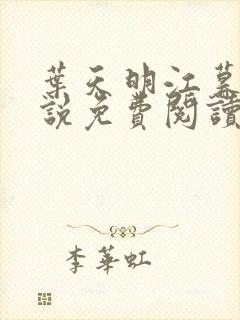 葉天明江慕
說免費閱讀
李華虹